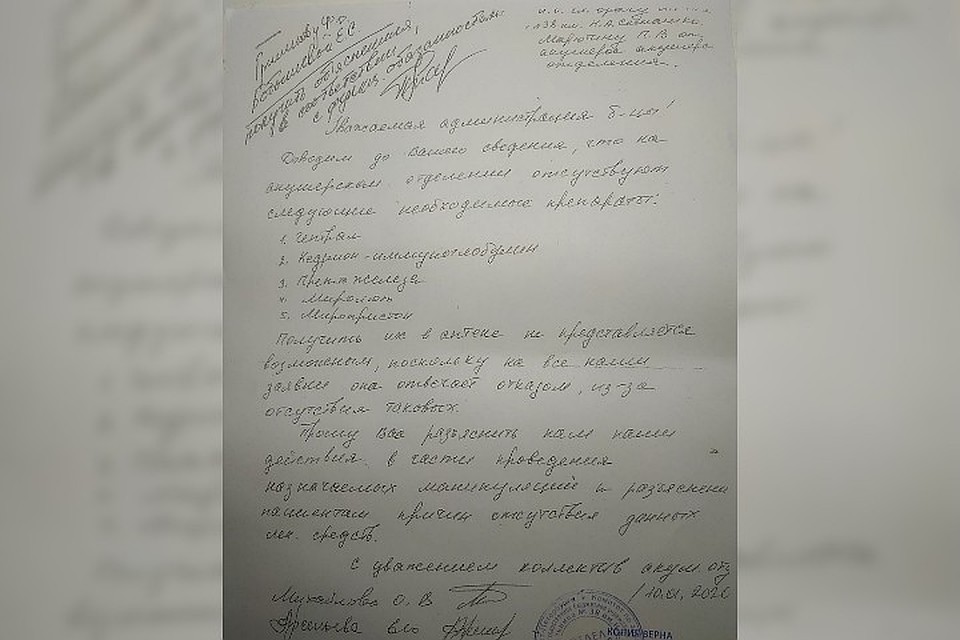 Грипповy Ф.
Е.С.
получить объяснения,
в соответствии
с функц. обязанностями
и.о. гл. врачу
им. Н.А. Семашко
Марютину П.В. от
акушеров акушерс
отделения.
Уважаемая администрация б-цы!
Доводим до Вашего сведения, что на
акушерском отделении отсутствуют
следующие необходимые препараты:
1. Гептрал
2. Кедрион-иммуноглобулин
3. Преп. железа
4. Миролют
5. Мифепристон
Получить их в аптеке не представляется
возможным, поскольку на все наши
заявки она отвечает отказом, из-за
отсутствия таковых.
Прошу Вас разъяснить нам наши
действия в части проведения
назначаемых манипуляций и разъяснени
пациентам причин отсутствия данных
лек. средств.
с уважением коллектив акуш. отд
Михайлова О. В / 10.01.2020
КОПИЯ ВЕРНА